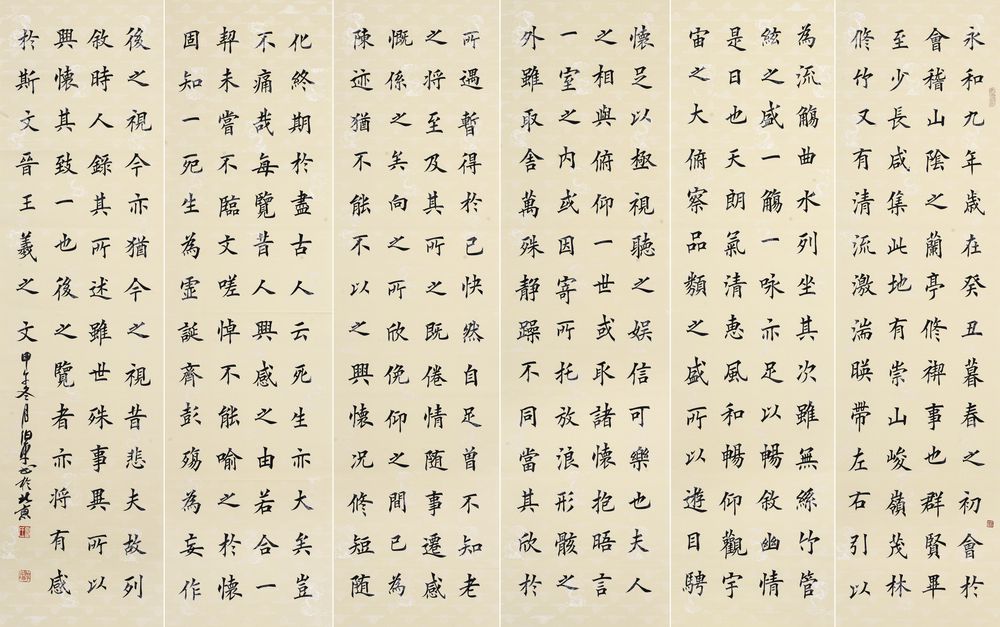 永和九年歳在癸丑暮春之初會於
會稽山陰之蘭亭修禊事也群賢畢
至少長咸集此地有崇山峻嶺茂林
修竹又有清流激湍暎帶左右引以
為流觴曲水列坐其次雖無絲竹管
絃之盛一觴一咏亦足以暢敘幽情
是日也天朗氣清恵風和暢仰觀宇
宙之大俯察品類之盛所以遊目騁
懷足以極視聽之娱信可樂也夫人
之相與俯仰一世或取諸懷抱晤言
一室之内或因寄所托放浪形骸之
外雖取舍萬殊静躁不同當其欣於
所遇暫得於己快然自足曾不知老
之将至及其所之既倦情随事遷感
慨係之矣向之所欣俛仰之間已為
陳迹猶不能不以之興懷况修短随
化終期於盡古人云死生亦大矣豈
不痛哉每覽昔人興感之由若合一
契未嘗不臨文嗟悼不能喻之於懷
固知一死生為虚誕齊彭殤為妄作
後之視今亦猶今之視昔悲夫故列
敘時人錄其所述雖世殊事異所以
興懷其致一也後之覽者亦将有感
於斯文晉王羲之文
甲午冬月書於北京